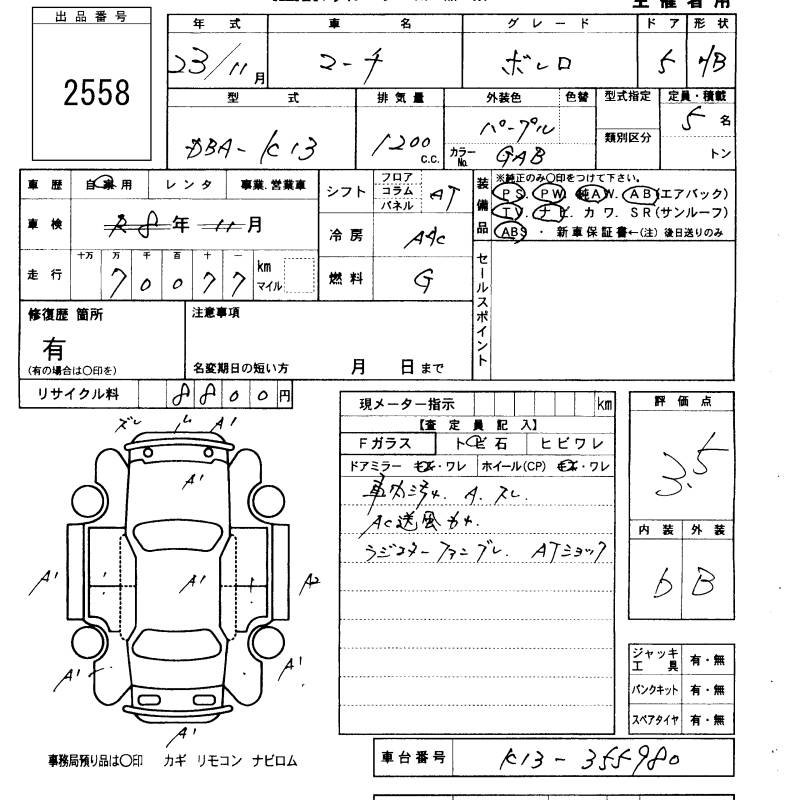 出品番号
2558
年式 車名 グレード ドア 形状
23/11月 マーチ ボレロ 5 HB
型式 排気量 外装色 色替 型式指定 定員・積載
DBA-K13 1200 c.c. パープル カラーNo. GAB 類別区分 5名 トン
車歴 自家用 レンタ 事業.営業車
車検 R8年11月
走行 十万 万 千 百 十 一 km マイル
70077
シフト フロア コラム パネル AT
冷房 AAC
燃料 G
装備品 ※純正のみ〇印をつけて下さい。
PS. PW. 純AW. AB(エアバック)
TV. ナビ. カワ. SR(サンルーフ)
ABS ・ 新車保証書←(注) 後日送りのみ
セールスポイント
修復歴 箇所
有
(有の場合は〇印を)
注意事項
名変期日の短い方 月 日まで
リサイクル料 8800円
現メーター指示 km
【査定員記入】
Fガラス トビ石 ヒビワレ
ドアミラー キズ・ワレ ホイール(CP) キズ・ワレ
A. スレ.
AC送風
ラジエターファンブレ. ATショック
評価点
3.5
内装 外装
b B
ジャッキ工具 有・無
パンクキット 有・無
スペアタイヤ 有・無
ズレ A'
A'
A' A' A2
A' A'
A'
事務局預り品は〇印 カギ リモコン ナビロム
車台番号 K13-355980